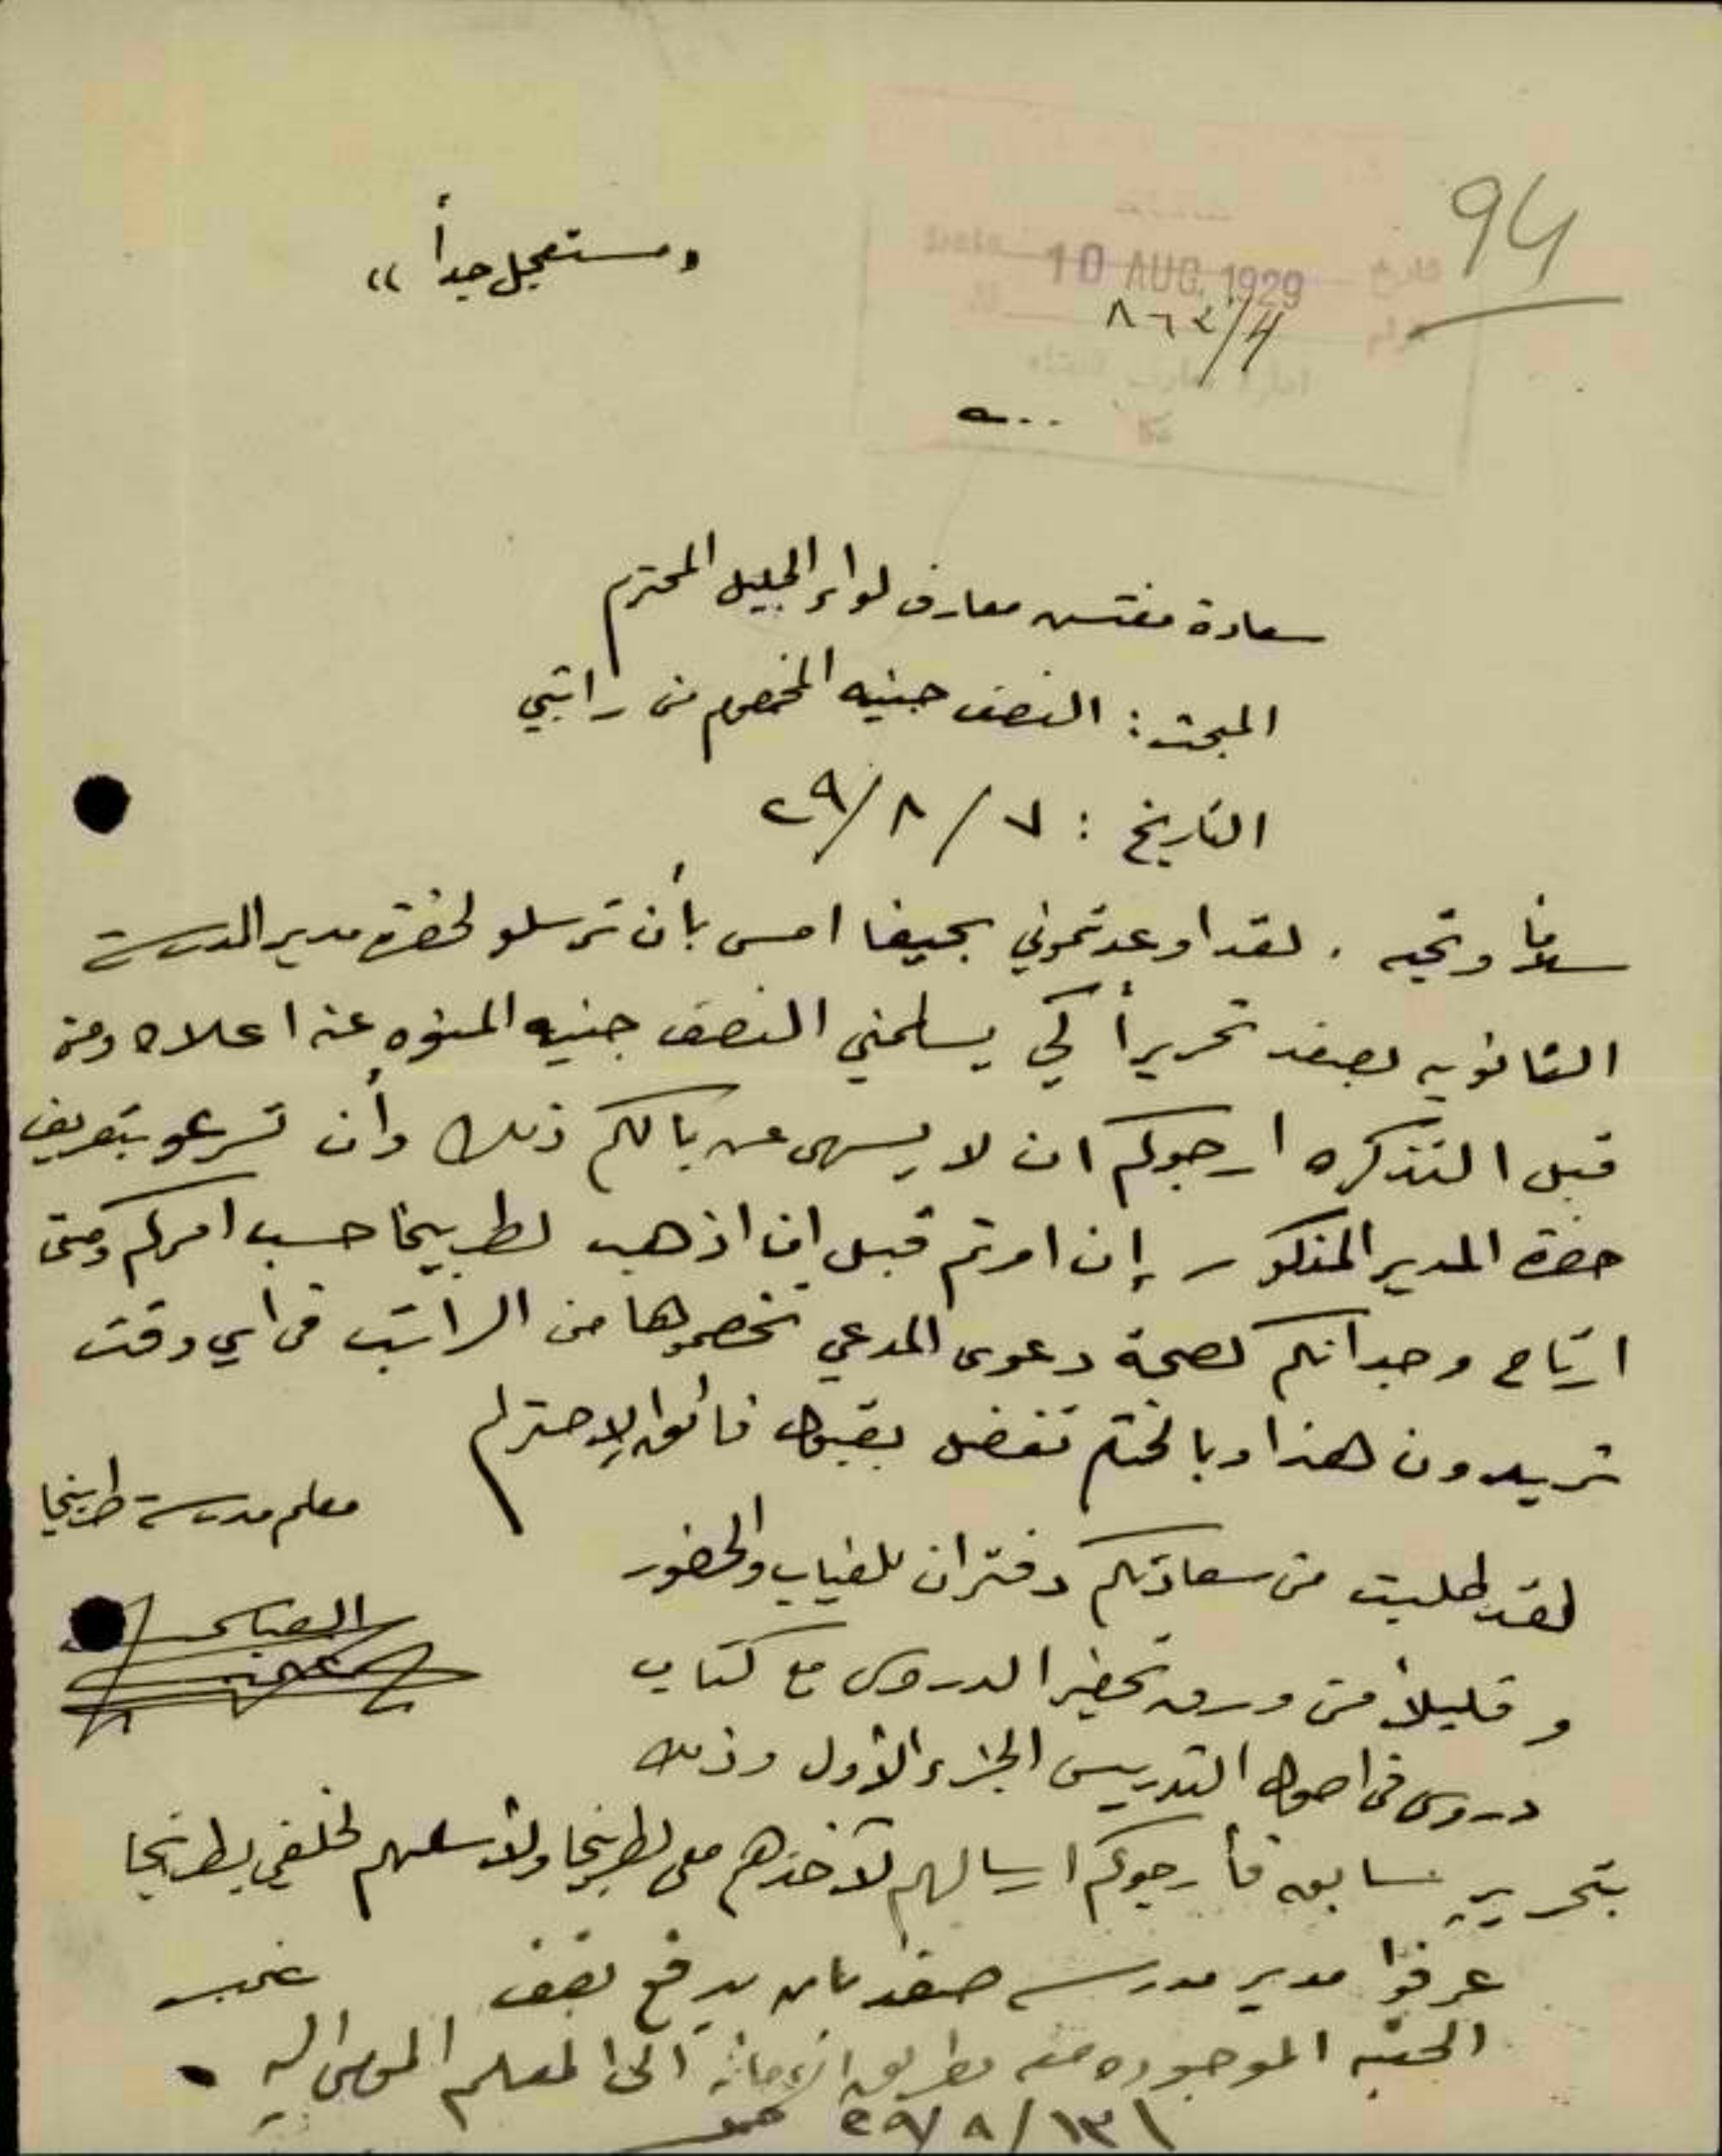 94
«مستعجل جداً»
تاريخ 10 AUG. 1929 Date
رقم ٨٦٤/4 No.
ادارة معارف اللواء
عكا
سعادة مفتش معارف لواء الجليل المحترم
المبحث: النصف جنيه المخصوم من راتبي
التاريخ: ٧/٨/٢٩
سلاماً وتحيه. لقد اوعدتموني بحيفا امس بأن ترسلو لحضرة مدير المدرسة
الثانويه بصفد تحريراً كي يسلمني النصف جنيه المنوه عنه اعلاه ومن
قبل التذكره ارجوكم ان لا يسهى عن بالكم ذلك وأن تسرعو بتعريف
حضرة المدير المذكور إن امرتم قبل ان اذهب لطربيخا حسب امركم ومتى
ارتاح وجدانكم لصحة دعوى المدعي تخصموها من الراتب في اي وقت
تريدون هذا وبالختم تفضل بقبول فائق الاحترام
معلم مدرسة طربيخا
لقد طلبت من سعادتكم دفتران للغياب والحضور
وقليلاً من ورق تحضير الدروس مع كتاب
دروس في اصول التدريس الجزء الأول وذلك
بتحرير سابق فأرجوكم ارسالهم لآخذهم معي لطربيخا ولأسلمهم لخلفي بطربيخا
عرفوا مدير مدرسة صفد بان يدفع نصف
الجنيه الموجوده معه بطريق الى المعلم المومى اليه.
١٣/٨/٢٩